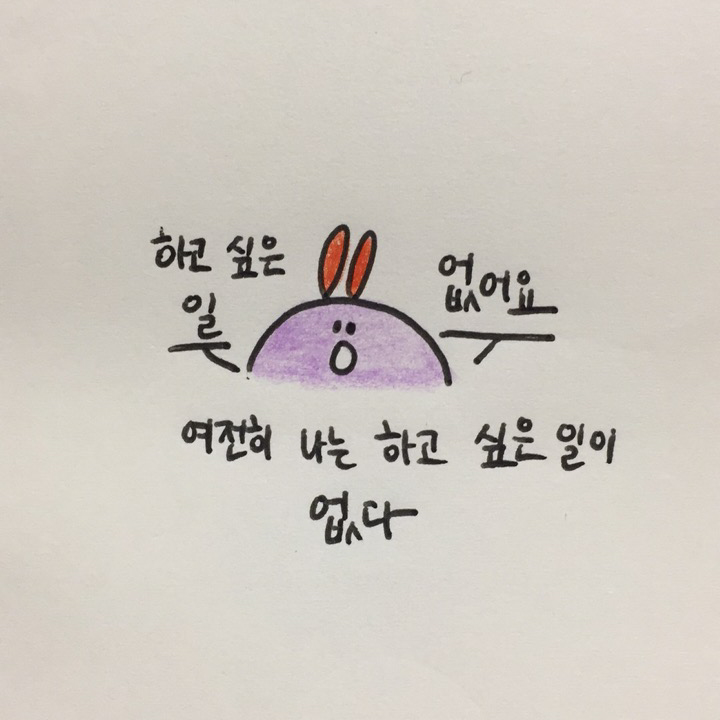 하고 싶은
일
없어요
여전히 나는 하고 싶은 일이
없다